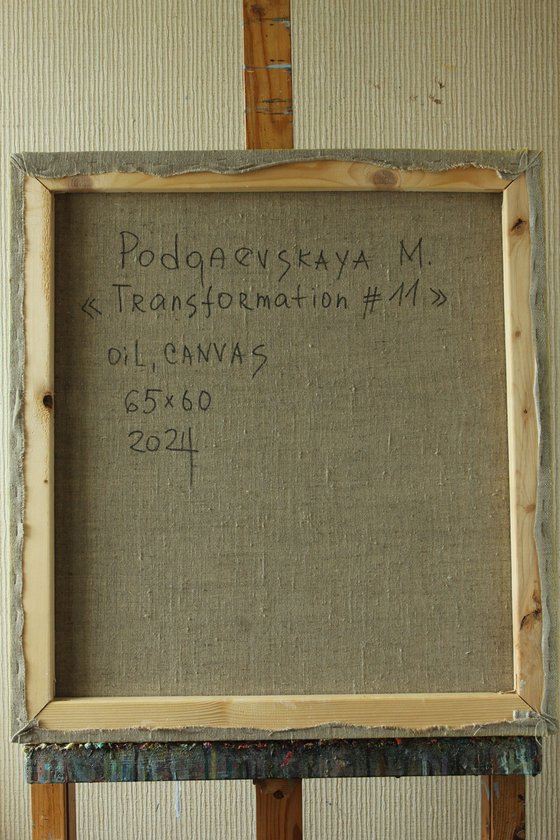 Podgaevskaya M.
« Transformation # 11 »
OiL, CANVAS
65x60
2024